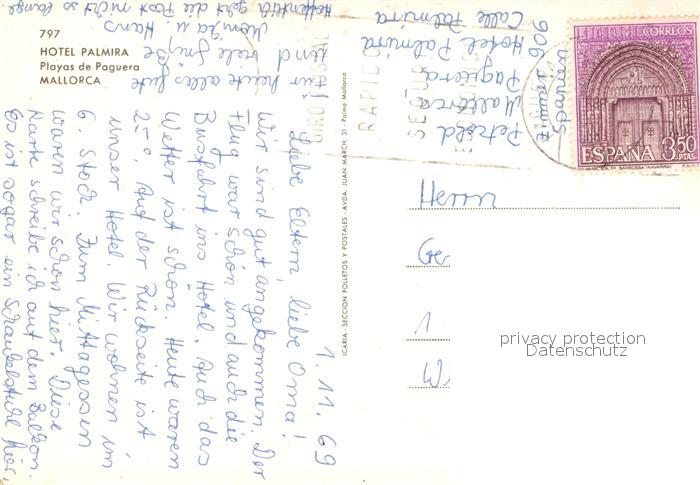 797
HOTEL PALMIRA
Playas de Paguera
MALLORCA
1.11.69
Liebe Eltern, liebe Oma!
Wir sind gut angekommen. Der
Flug war schön und auch die
Busfahrt ins Hotel. Auch das
Wetter ist schön. Heute waren
25°. Auf der Rückseite ist
unser Hotel. Wir wohnen im
6. Stock. Zum Mittagessen
waren wir schon hier. Diese
Karte schreibe ich auf dem Balkon.
Es ist sogar ein Schaukelstuhl hier.
Für heute alles gute
und viele Grüße
Monika u. Hans
Hoffentlich geht die Post nicht so lange.
Petzold
Mallorca,
Paguera
Hotel Palmira
Calle Palmira
906
Spanien
ICARIA - SECCION FOLLETOS Y POSTALES - AVDA. JUAN MARCH, 31 Palma Mallorca
GIRO POSTAL
RAPIDO
SEGURO
CORREOS
ESPAÑA 3,50
PTAS
Herrn
1
privacy protection
Datenschutz